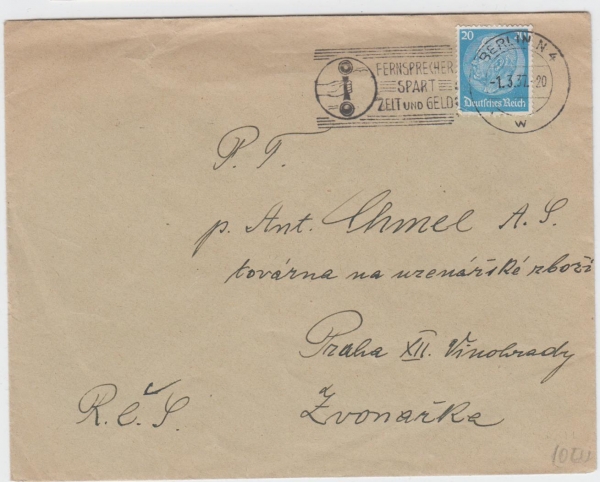 FERNSPRECHER
SPART
ZEIT UND GELD
20
Deutsches Reich
BERLIN N 4
-1.3.37.-20
w
P. T.
p. Ant. Chmel A. S.
továrna na uzenářské zboží
Praha XII. Vinohrady
Zvonařka
R. Č. S.